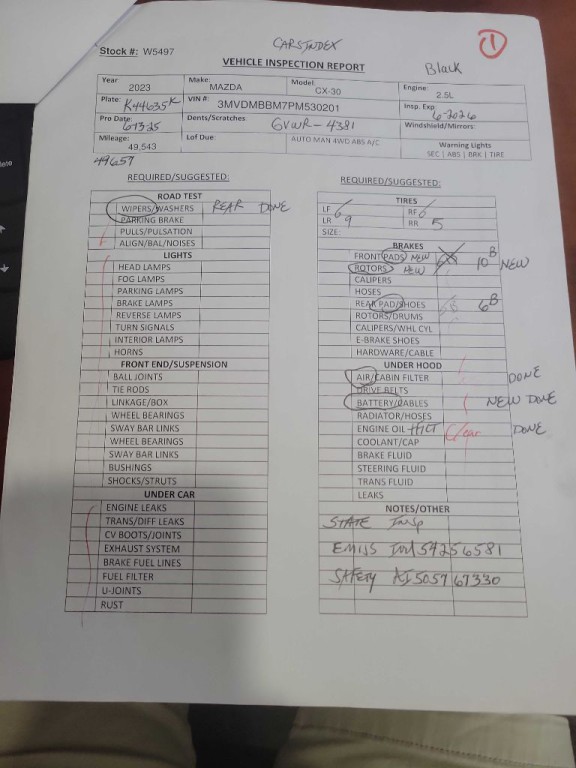 CARSINDEX
1
Stock #: W5497
VEHICLE INSPECTION REPORT
Black
Year 2023 Make: MAZDA Model CX-30 Engine: 2.5L
Plate: K44635K VIN #: 3MVDMBBM7PM530201 Insp. Exp 6-2026
Pro Date: 6-13-25 Dents/Scratches: GVWR - 4381 Windshield/Mirrors:
Mileage: 49,543 Lof Due: AUTO MAN 4WD ABS A/C Warning Lights
SEC | ABS | BRK | TIRE
49657
REQUIRED/SUGGESTED:
ROAD TEST
WIPERS/WASHERS REAR DONE
PARKING BRAKE
PULLS/PULSATION
ALIGN/BAL/NOISES
LIGHTS
HEAD LAMPS
FOG LAMPS
PARKING LAMPS
BRAKE LAMPS
REVERSE LAMPS
TURN SIGNALS
INTERIOR LAMPS
HORNS
FRONT END/SUSPENSION
BALL JOINTS
TIE RODS
LINKAGE/BOX
WHEEL BEARINGS
SWAY BAR LINKS
WHEEL BEARINGS
SWAY BAR LINKS
BUSHINGS
SHOCKS/STRUTS
UNDER CAR
ENGINE LEAKS
TRANS/DIFF LEAKS
CV BOOTS/JOINTS
EXHAUST SYSTEM
BRAKE FUEL LINES
FUEL FILTER
U-JOINTS
RUST
REQUIRED/SUGGESTED:
TIRES
LF 6 RF 6
LR 9 RR 5
SIZE:
BRAKES
FRONT PADS NEW 10 B NEW
ROTORS NEW
CALIPERS
HOSES
REAR PAD/SHOES 6 B
ROTORS/DRUMS
CALIPERS/WHL CYL
E-BRAKE SHOES
HARDWARE/CABLE
UNDER HOOD
AIR/CABIN FILTER DONE
DRIVE BELTS
BATTERY/CABLES NEW DONE
RADIATOR/HOSES
ENGINE OIL DONE
COOLANT/CAP
BRAKE FLUID
STEERING FLUID
TRANS FLUID
LEAKS
NOTES/OTHER
STATE INSP
EMISS 54256581
SAFETY AI505767330